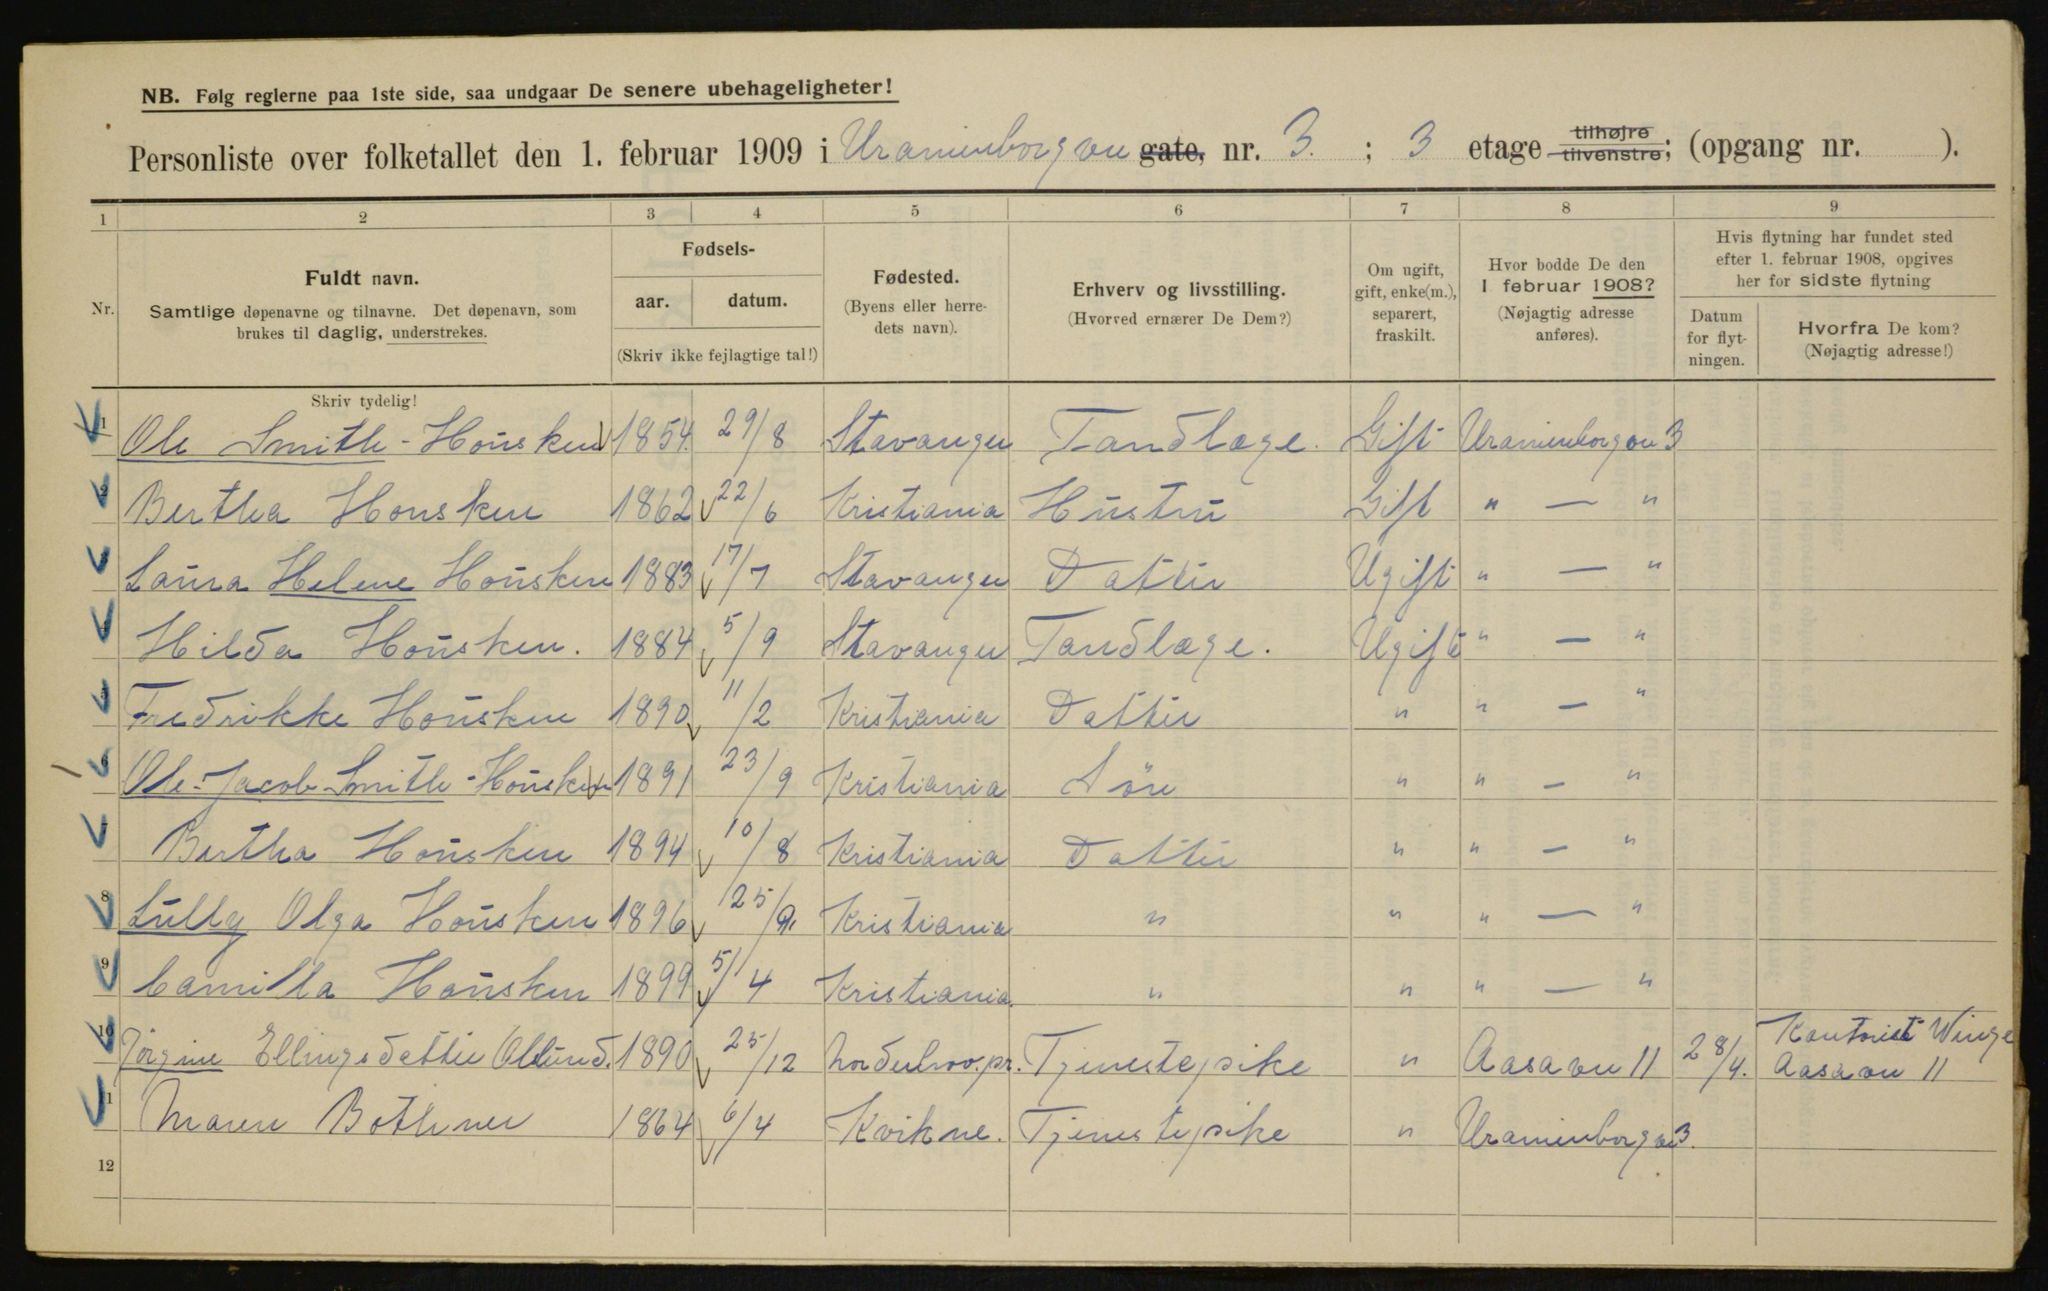 NB. Følg reglerne paa 1ste side, saa undgaar De senere ubehageligheter!
Personliste over folketallet den 1. februar 1909 i Uranienborgvn gate, nr. 3. ; 3 etage tilhøjre tilvenstre; (opgang nr. ).
1 2 3 4 5 6 7 8 9
Nr.
Fuldt navn.
Samtlige døpenavne og tilnavne. Det døpenavn, som
brukes til daglig, understrekes.
Skriv tydelig!
Fødsels-
aar. datum.
(Skriv ikke fejlagtige tal!)
Fødested.
(Byens eller herre-
dets navn).
Erhverv og livsstilling.
(Hvorved ernærer De Dem?)
Om ugift,
gift, enke(m.),
separert,
fraskilt.
Hvor bodde De den
1 februar 1908?
(Nøjagtig adresse
anføres).
Hvis flytning har fundet sted
efter 1. februar 1908, opgives
her for sidste flytning
Datum
for flyt-
ningen.
Hvorfra De kom?
(Nøjagtig adresse!)
1 Ole Smith-Housken 1854. 29/8 Stavanger Tandlæge. Gift Uranienborgvn 3
2 Bertha Housken 1862 22/6 Kristiania Hustru Gift " — "
3 Laura Helene Housken 1883 17/7 Stavanger Datter Ugift " — "
4 Hilda Housken. 1884 5/9 Stavanger Tandlæge. Ugift " — "
5 Fredrikke Housken 1890 11/2 Kristiania Datter " " — "
6 Ole-Jacob Smith-Housken 1891 23/9 Kristiania Søn " " — "
7 Bertha Housken 1894 10/8 Kristiania Datter " " — "
8 Lully Olga Housken 1896 25/9 Kristiania " " " — "
9 Camilla Housken 1899 5/4 Kristiania. " " " — "
10 Jørgine Ellingsdatter 1890 25/12 Norderhov. pr. Tjenestepike " Aasavn 11 28/4. Kontorist Winge
Aasavn 11
11 Maren Bothner 1864 6/4 Kvikne. Tjenestepike " Uranienborgvn 3.
12